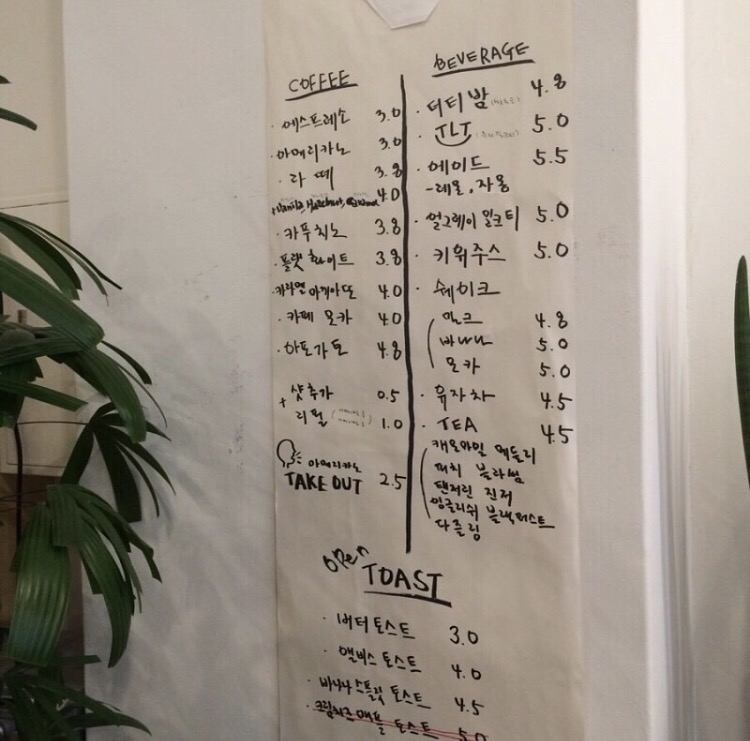 COFFEE
· 에스프레소 3.0
· 아메리카노 3.0
· 라떼 3.8
+ Vanilla, Hazelnut, 4.0
· 카푸치노 3.8
· 플랫 화이트 3.8
· 카라멜 마끼아또 4.0
· 카페 모카 4.0
· 아포가토 4.8
+ 샷추가 0.5
리필 1.0
아메리카노
TAKE OUT 2.5
BEVERAGE
· 더티밤 4.8
· TLT 5.0
· 에이드 5.5
- 레몬, 자몽
· 얼그레이 밀크티 5.0
· 키위주스 5.0
· 쉐이크
밀크 4.8
바나나 5.0
모카 5.0
· 유자차 4.5
· TEA 4.5
캐모마일 메들리
피치 블라썸
탠저린 진저
잉글리쉬 블랙퍼스트
다즐링
open TOAST
· 버터토스트 3.0
· 앨비스 토스트 4.0
· 바나나 스플릿 토스트 4.5
· 크림치즈 애플 토스트 5.0